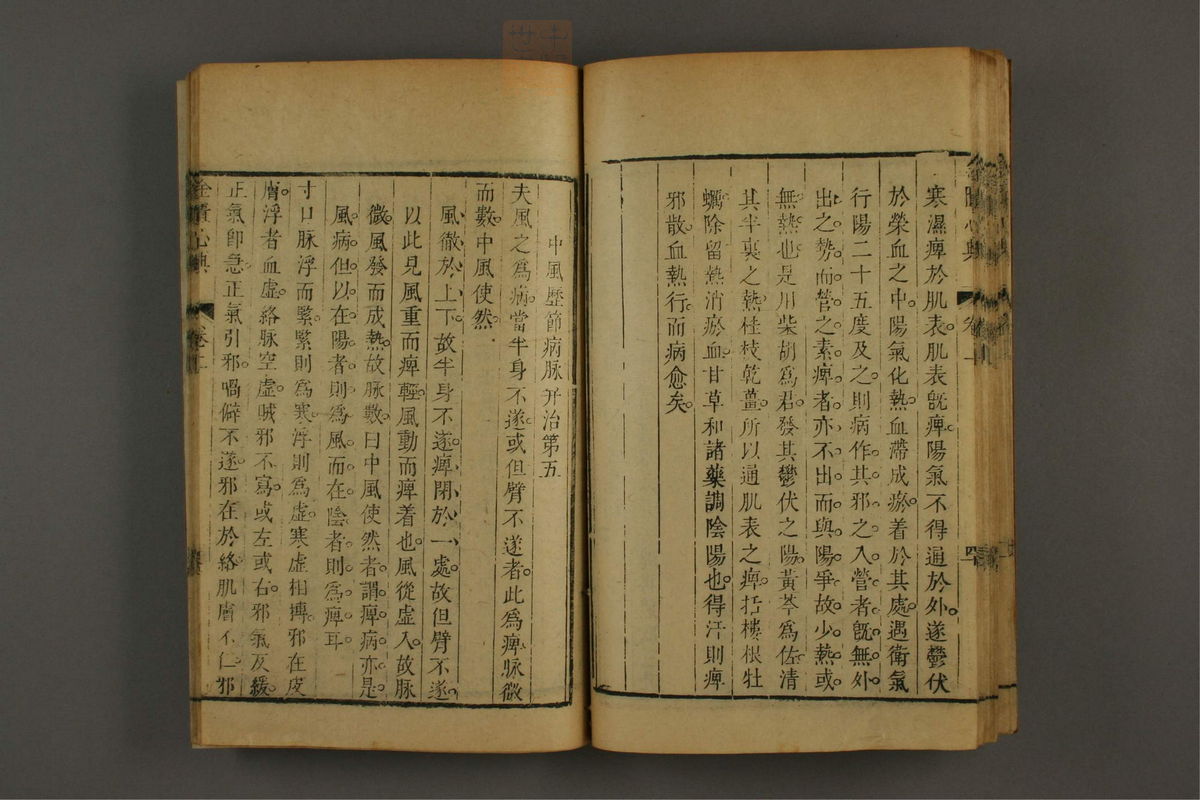 寒濕痺於肌表。肌表旣痺。陽氣不得通於外。遂鬱伏
於榮血之中。陽氣化熱。血滯成瘀。着於其處。遇衛氣
行陽二十五度及之。則病作。其邪之入營者。旣無外
出之勢。而營之素痺者。亦不出而與陽爭。故少熱。或
無熱也。是用柴胡爲君。發其鬱伏之陽。黃芩爲佐。清
其半裏之熱。桂枝乾薑。所以通肌表之痺。括樓根牡
蠣。除留熱。消瘀血。甘草和諸藥。調陰陽也。得汗則痺
邪散。血熱行。而病愈矣。
中風歷節病脉并治第五
夫風之爲病。當半身不遂。或但臂不遂者。此爲痺。脉微
而數。中風使然。
風徹於上下。故半身不遂。痺閉於一處。故但臂不遂。
以此見風重而痺輕。風動而痺着也。風從虛入。故脉
微。風發而成熱。故脉數。曰中風使然者。謂痺病亦是
風病。但以在陽者則爲風。而在陰者則爲痺耳
寸口脉浮而緊。緊則爲寒。浮則爲虛。寒虛相搏。邪在皮
膚。浮者血虛。絡脉空虛。賊邪不寫。或左或右。邪氣反緩。
正氣卽急。正氣引邪。喎僻不遂。邪在於絡。肌膚不仁。邪
金匱心典
卷上
四